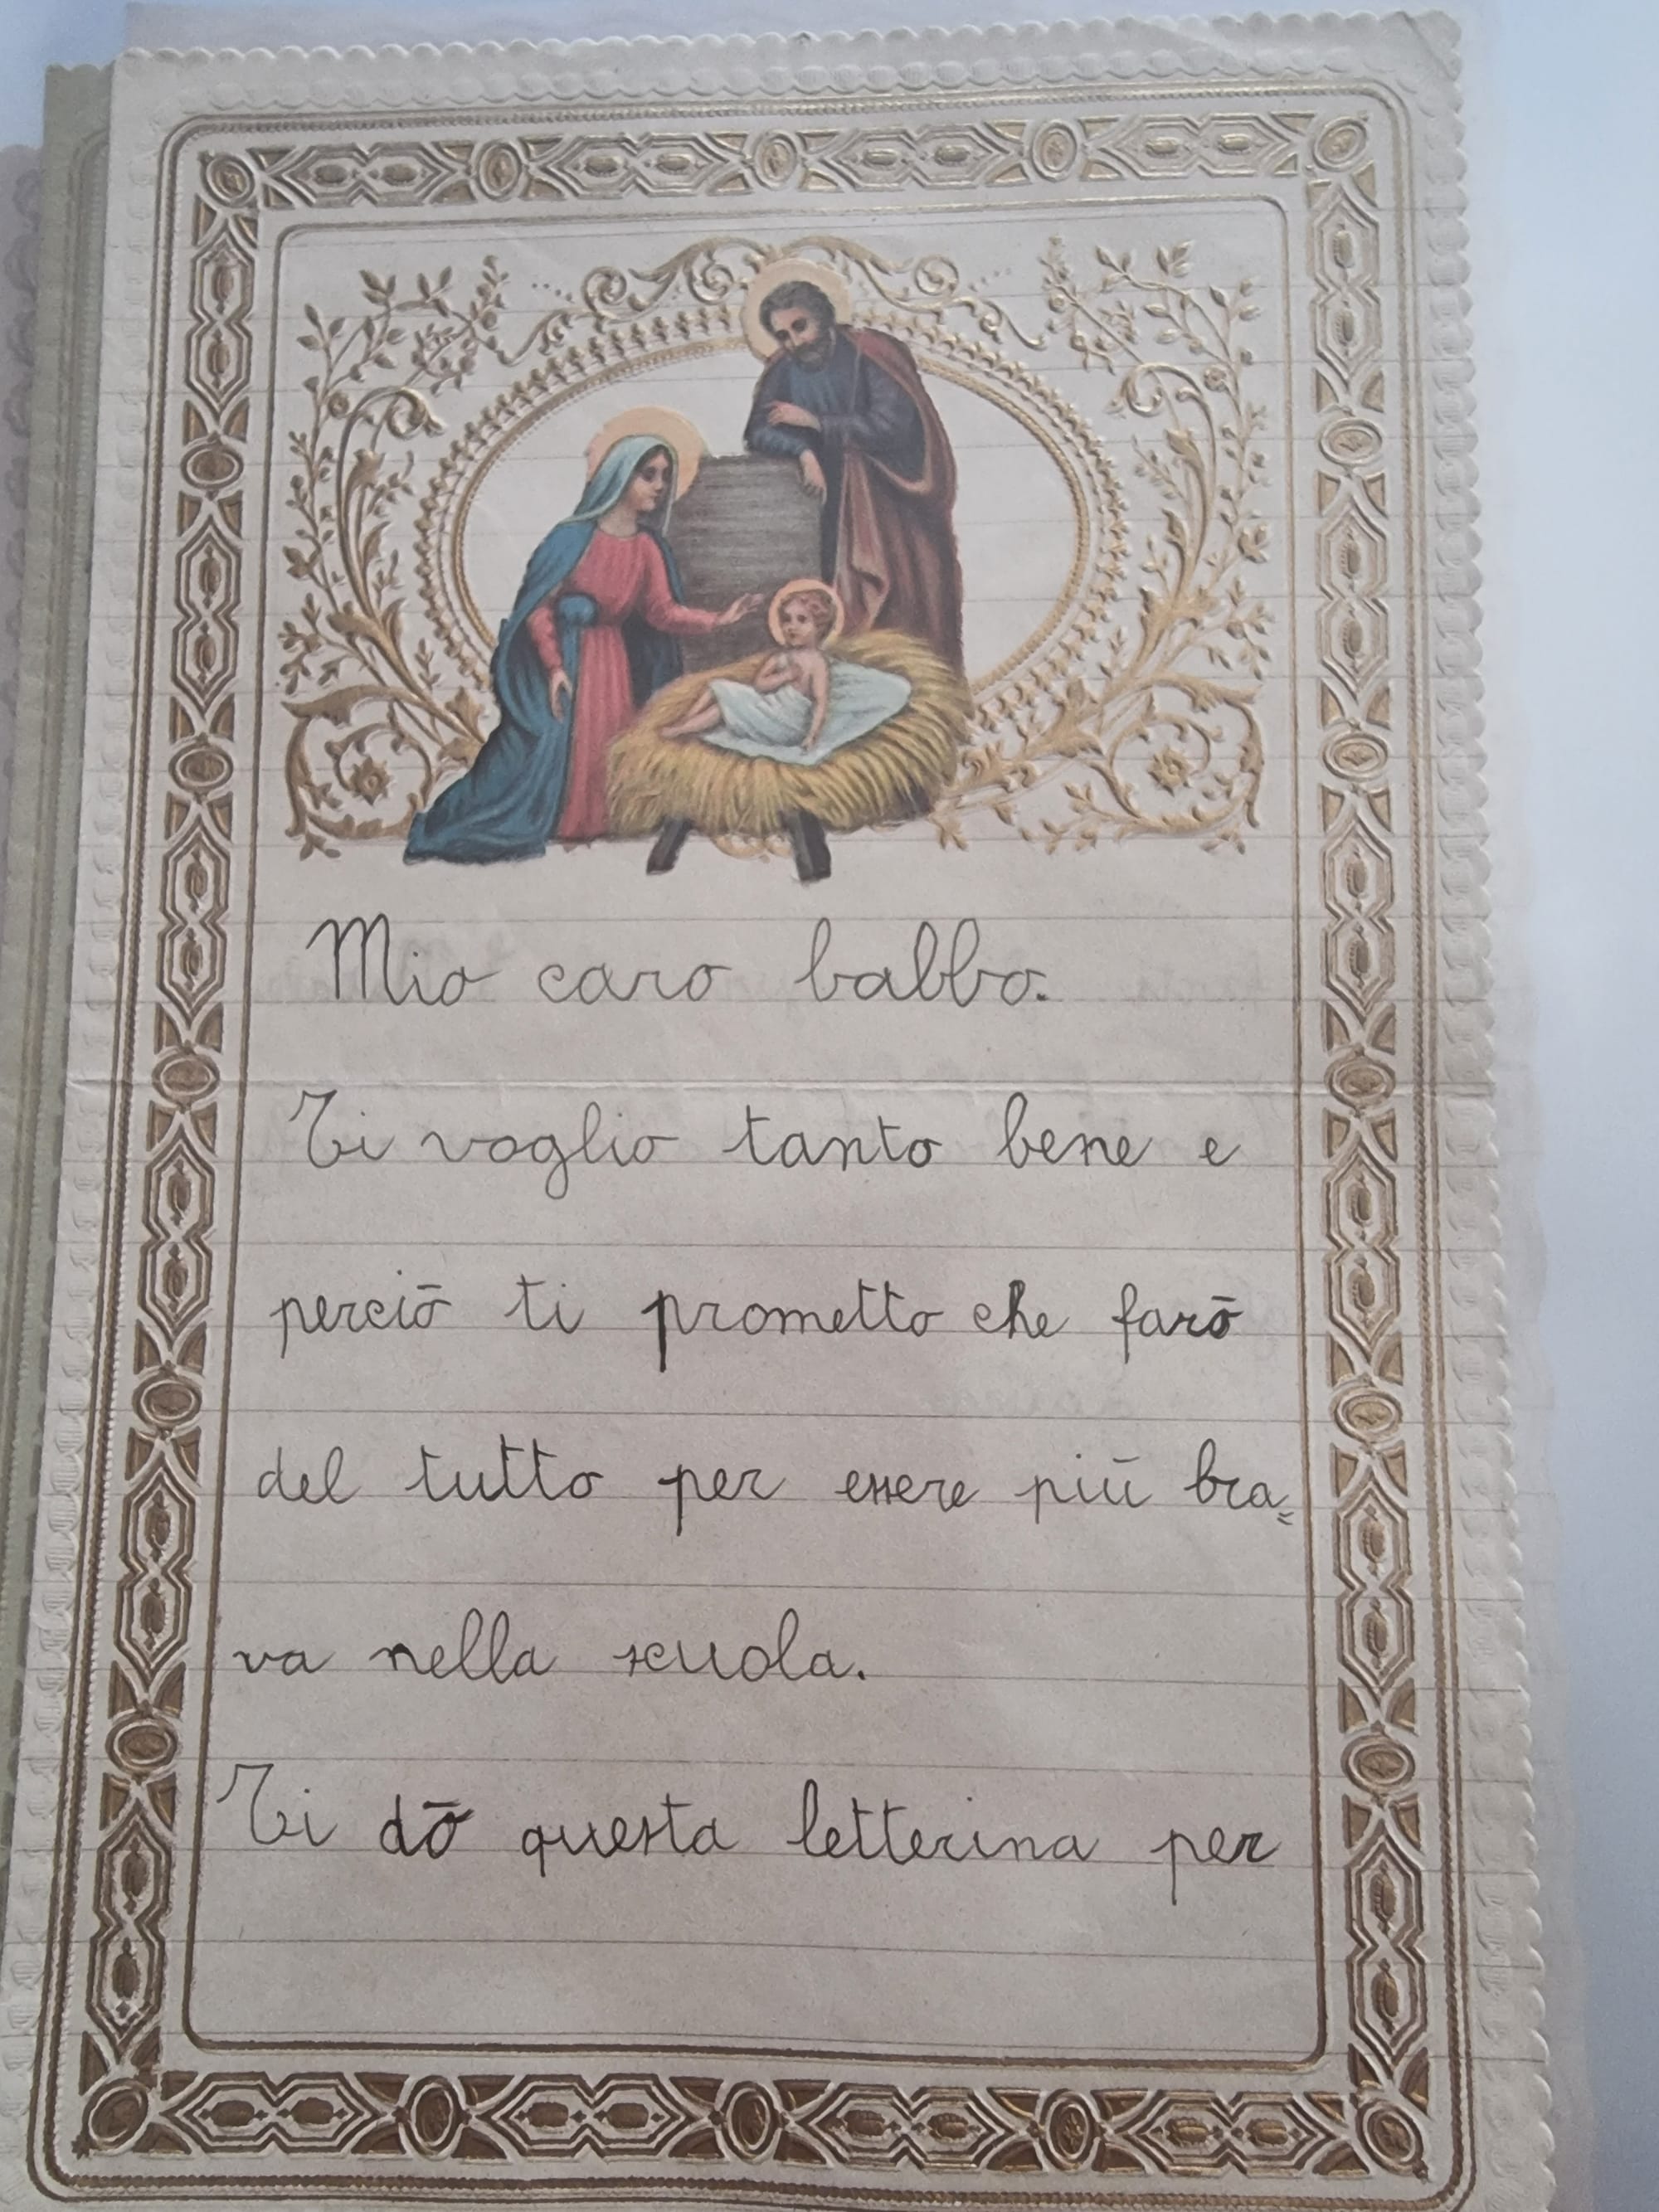 Mio caro babbo.
Ti voglio tanto bene e
perciō ti prometto che farō
del tutto per essere piū bra=
va nella scuola.
Ti dō questa letterina per